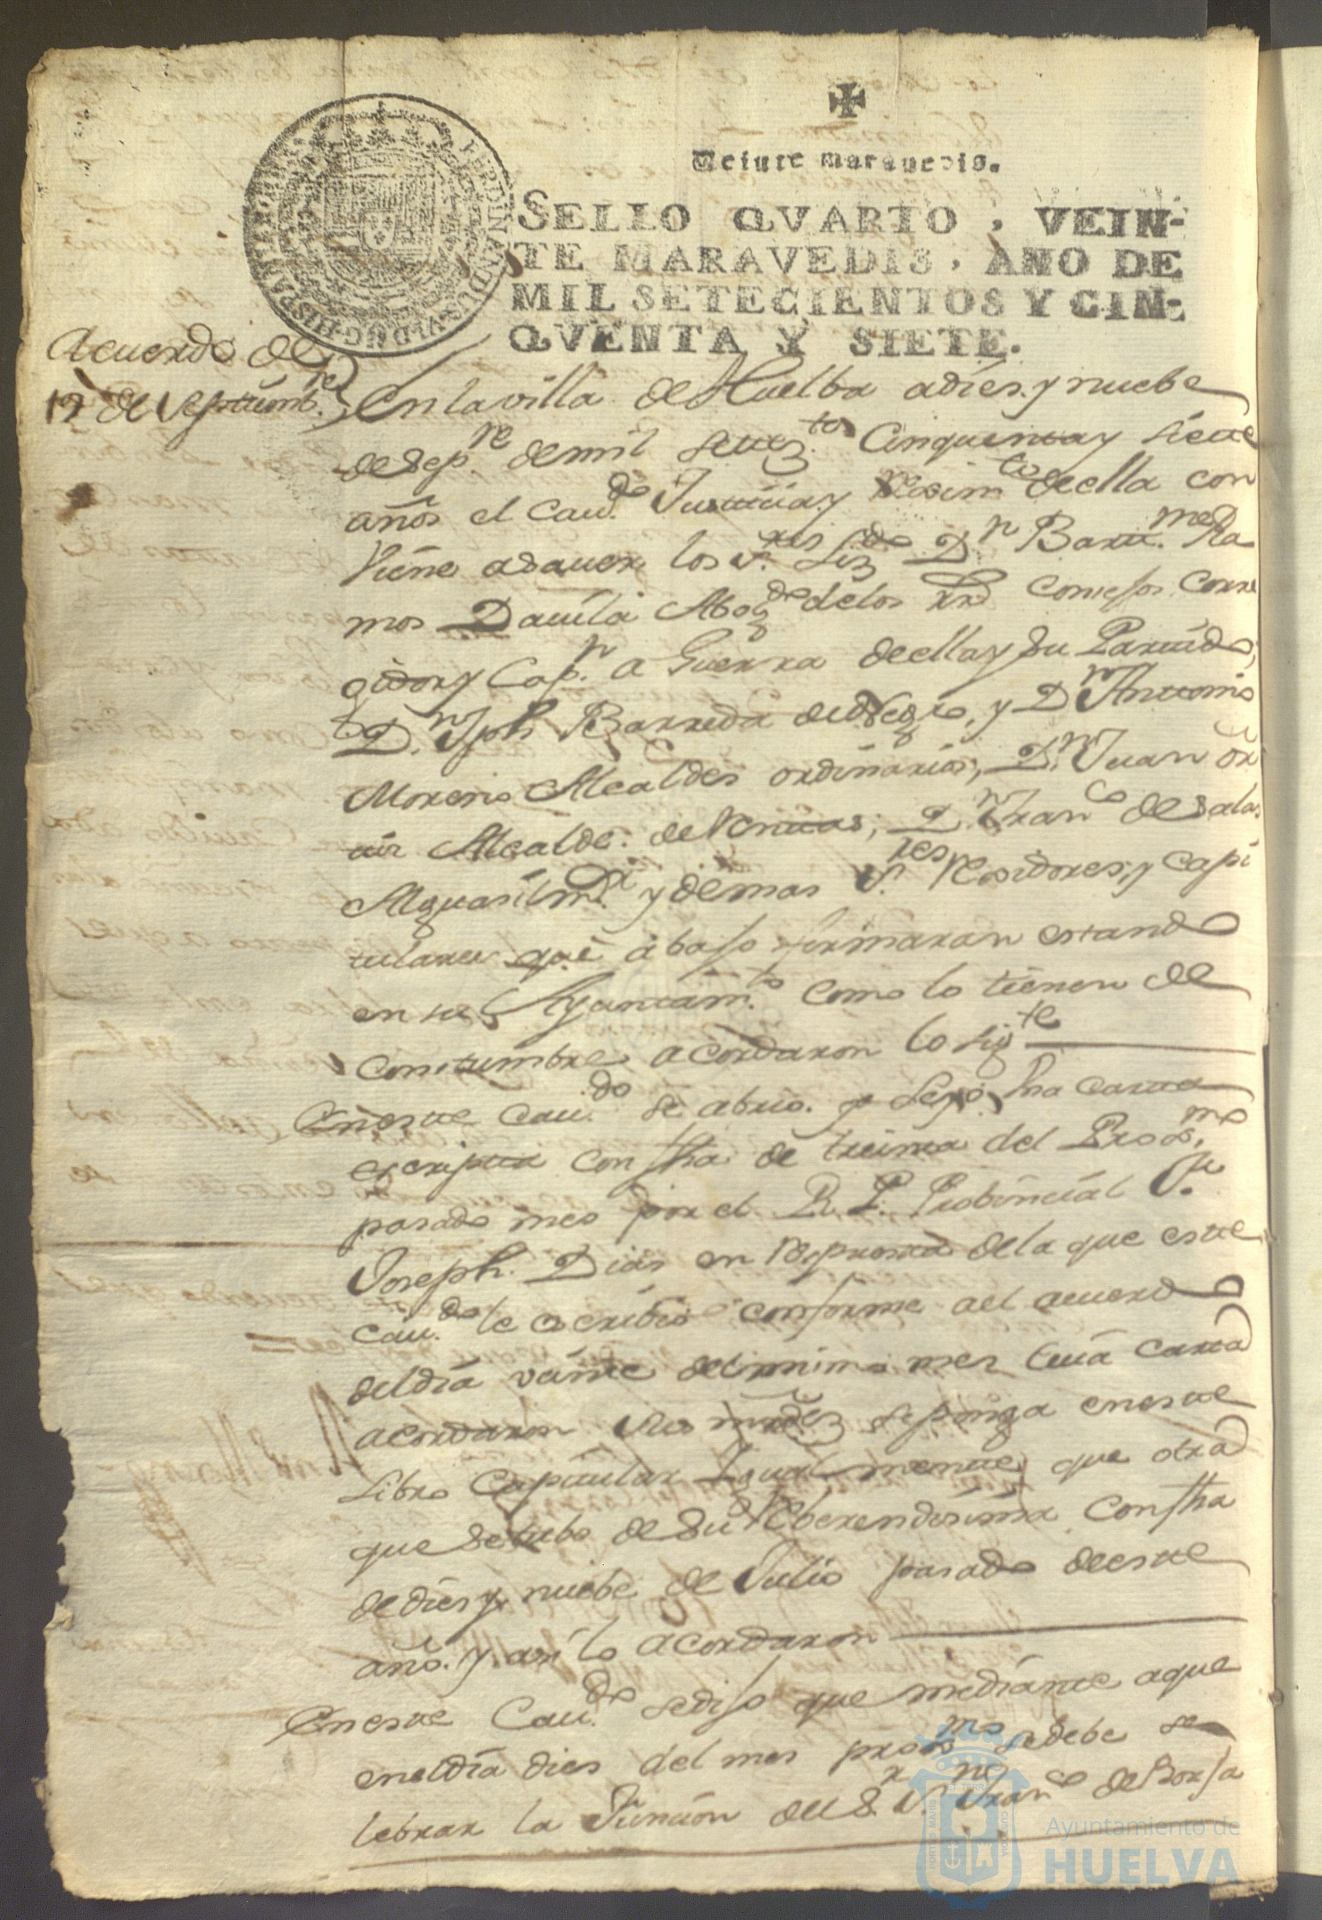 ✠
Veinte maravedis.
SELLO QVARTO, VEIN-
TE MARAVEDIS, AÑO DE
MIL SETECIENTOS Y CIN-
QVENTA Y SIETE.
FERDINANDUS VI D G HISPANIAR
Acuerdo de
19 de Septiemb.re
En la villa de Huelba a dies y nuebe
de Sep.re de mil setez.tos Cinquenta y siete
años el Cau.do Justicia y Regim.to de ella con
biene a sauer los s.res Liz.do D.n Bartt.me Ra
mos Dauila Abog.do de los R.s Consejos Corre
gidor y Cap.n a Guerra de ella y su Partido,
D.n Jph Barreda y D.n Antonio
Moreno Alcaldes ordinarios, D.n Juan or
Alcalde de ; D.n Fran.co de Salas
Alguasil m.or y demas S.res Regidores, y Capi
tulares que abajo firmaran estando
en su Ayuntam.to como lo tienen de
Constumbre acordaron lo sig.te
En este Cau.do se abrio y leyo Vna carta
escripta con fha de treinta del Prox.mo
pasado mes por el R. P. Probincial Fr.
Joseph Dias en respuesta de la que este
Cau.do le escribio conforme ael acuerdo
del dia veinte del mismo mes cuia carta
acordaron sus mrdes se ponga en este
Libro Capitular Igual mente que otra
que se tubo de su Reberendisima Con fha
de dies y nuebe de Julio pasado de este
año. y asi lo acordaron
En este Cau.do se dijo que mediante aque
en el dia dies del mes prox.mo se debe se
lebrar la Funcion del S.r S.n Fran.co de Borja
Ayuntamiento de
HUELVA